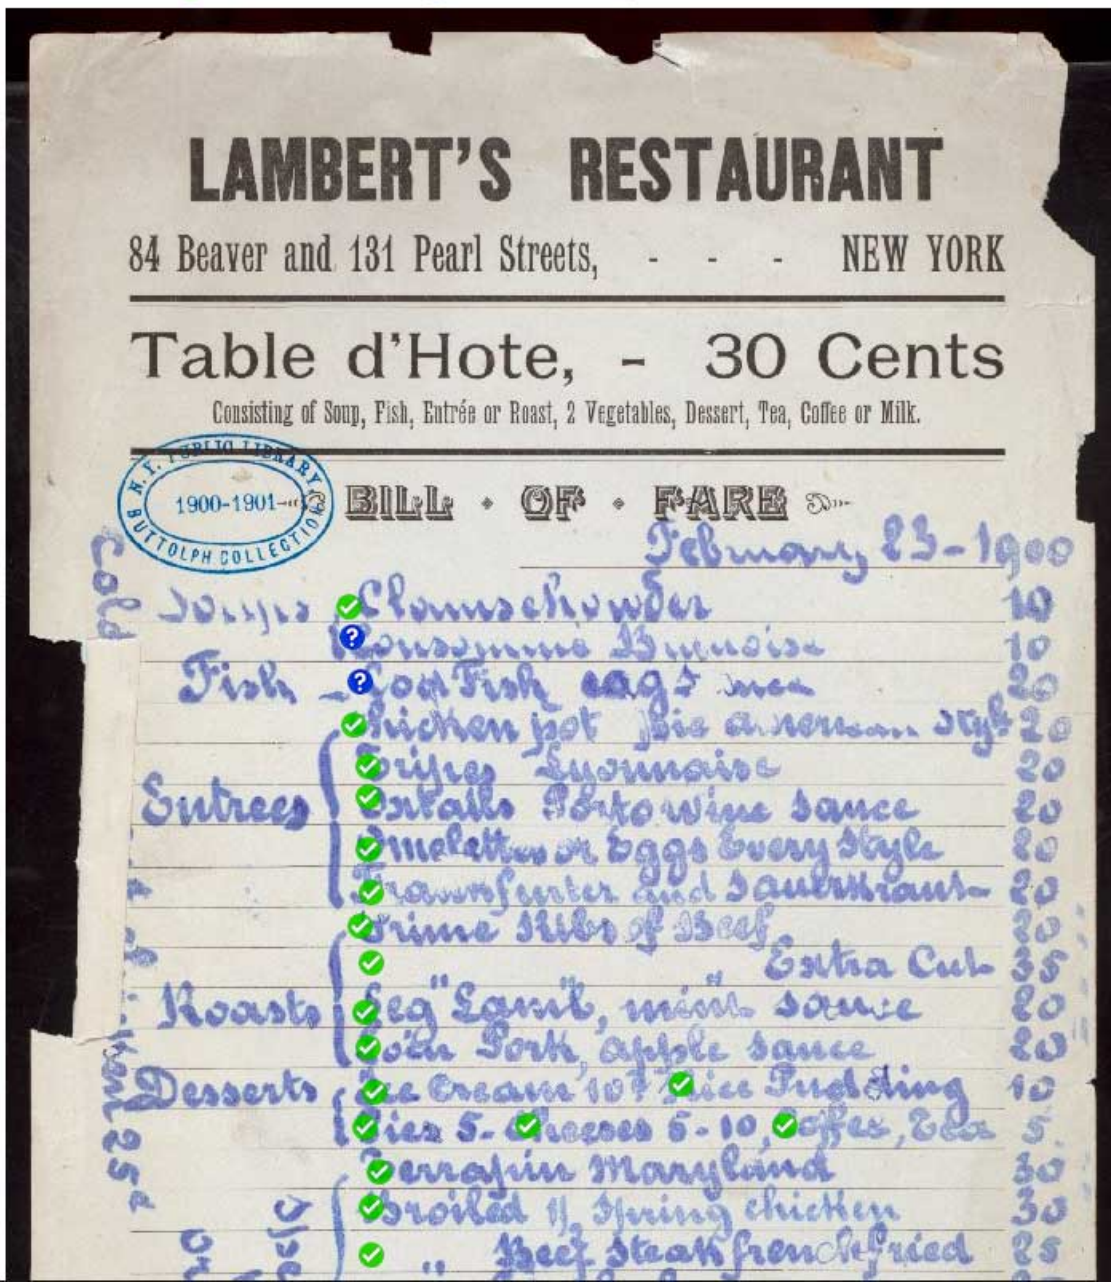 LAMBERT'S RESTAURANT
84 Beaver and 131 Pearl Streets, - - - NEW YORK
Table d'Hote, - 30 Cents
Consisting of Soup, Fish, Entrée or Roast, 2 Vegetables, Dessert, Tea, Coffee or Milk.
N. Y. PUBLIC LIBRARY
1900-1901
BUTTOLPH COLLECTION
BILL · OF · FARE
February 23-1900
Cold
Soups Clamschowder 10
Consommé 10
Fish Cod Fish 20
Chicken pot Pie american style 20
Tripes Lyonnaise 20
Entrees Oxtails Porto wine sauce 20
Omelettes or Eggs Every Style 20
Frankfurter and Sauerkraut 20
Prime Ribs of Beef 20
Extra Cut 35
Roasts Leg "Lamb", mint sauce 20
Loin Pork, apple sauce 20
Desserts Ice Cream 10 Rice Pudding 10
Pies 5- Cheeses 5-10, Coffee, Tea 5
Terrapin Maryland 30
Broiled Spring chicken 30
" Beef Steak french fried 25
25¢
or